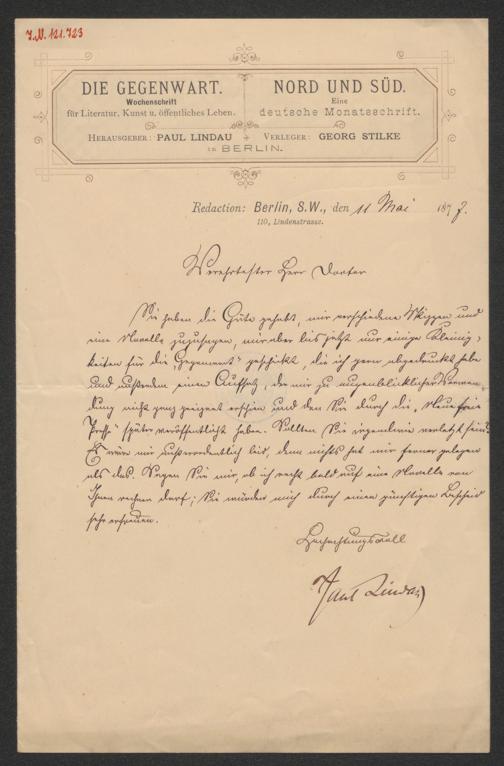 J.N. 121.723
DIE GEGENWART.
Wochenschrift
für Literatur, Kunst u. öffentliches Leben.
NORD UND SÜD.
Eine
deutsche Monatsschrift.
HERAUSGEBER: PAUL LINDAU VERLEGER: GEORG STILKE
IN BERLIN.
Redaction: Berlin, S.W., den 11 Mai 1877.
110, Lindenstrasse.
Verehrtester Herr Doctor
Sie haben die Güte gehabt, mir verschiedene Skizzen und
eine Novelle zuzusagen, mir aber bis jetzt nur einige Kleinig-
keiten für die „Gegenwart" geschickt, die ich gern abgedruckt habe
und außerdem einen Aufsatz, der mir zu augenblicklicher Verwen-
dung nicht ganz geeignet erschien und den Sie durch die „Neue freie
Presse" später veröffentlicht haben. Sollten Sie irgendwie verletzt sein?
Es wäre mir außerordentlich leid, denn nichts hat mir ferner gelegen
als das. Sagen Sie mir, ob ich recht bald auf eine Novelle von
Ihnen rechnen darf; Sie würden mich durch einen günstigen Bescheid
sehr erfreuen.
Hochachtungsvoll
Paul Lindau